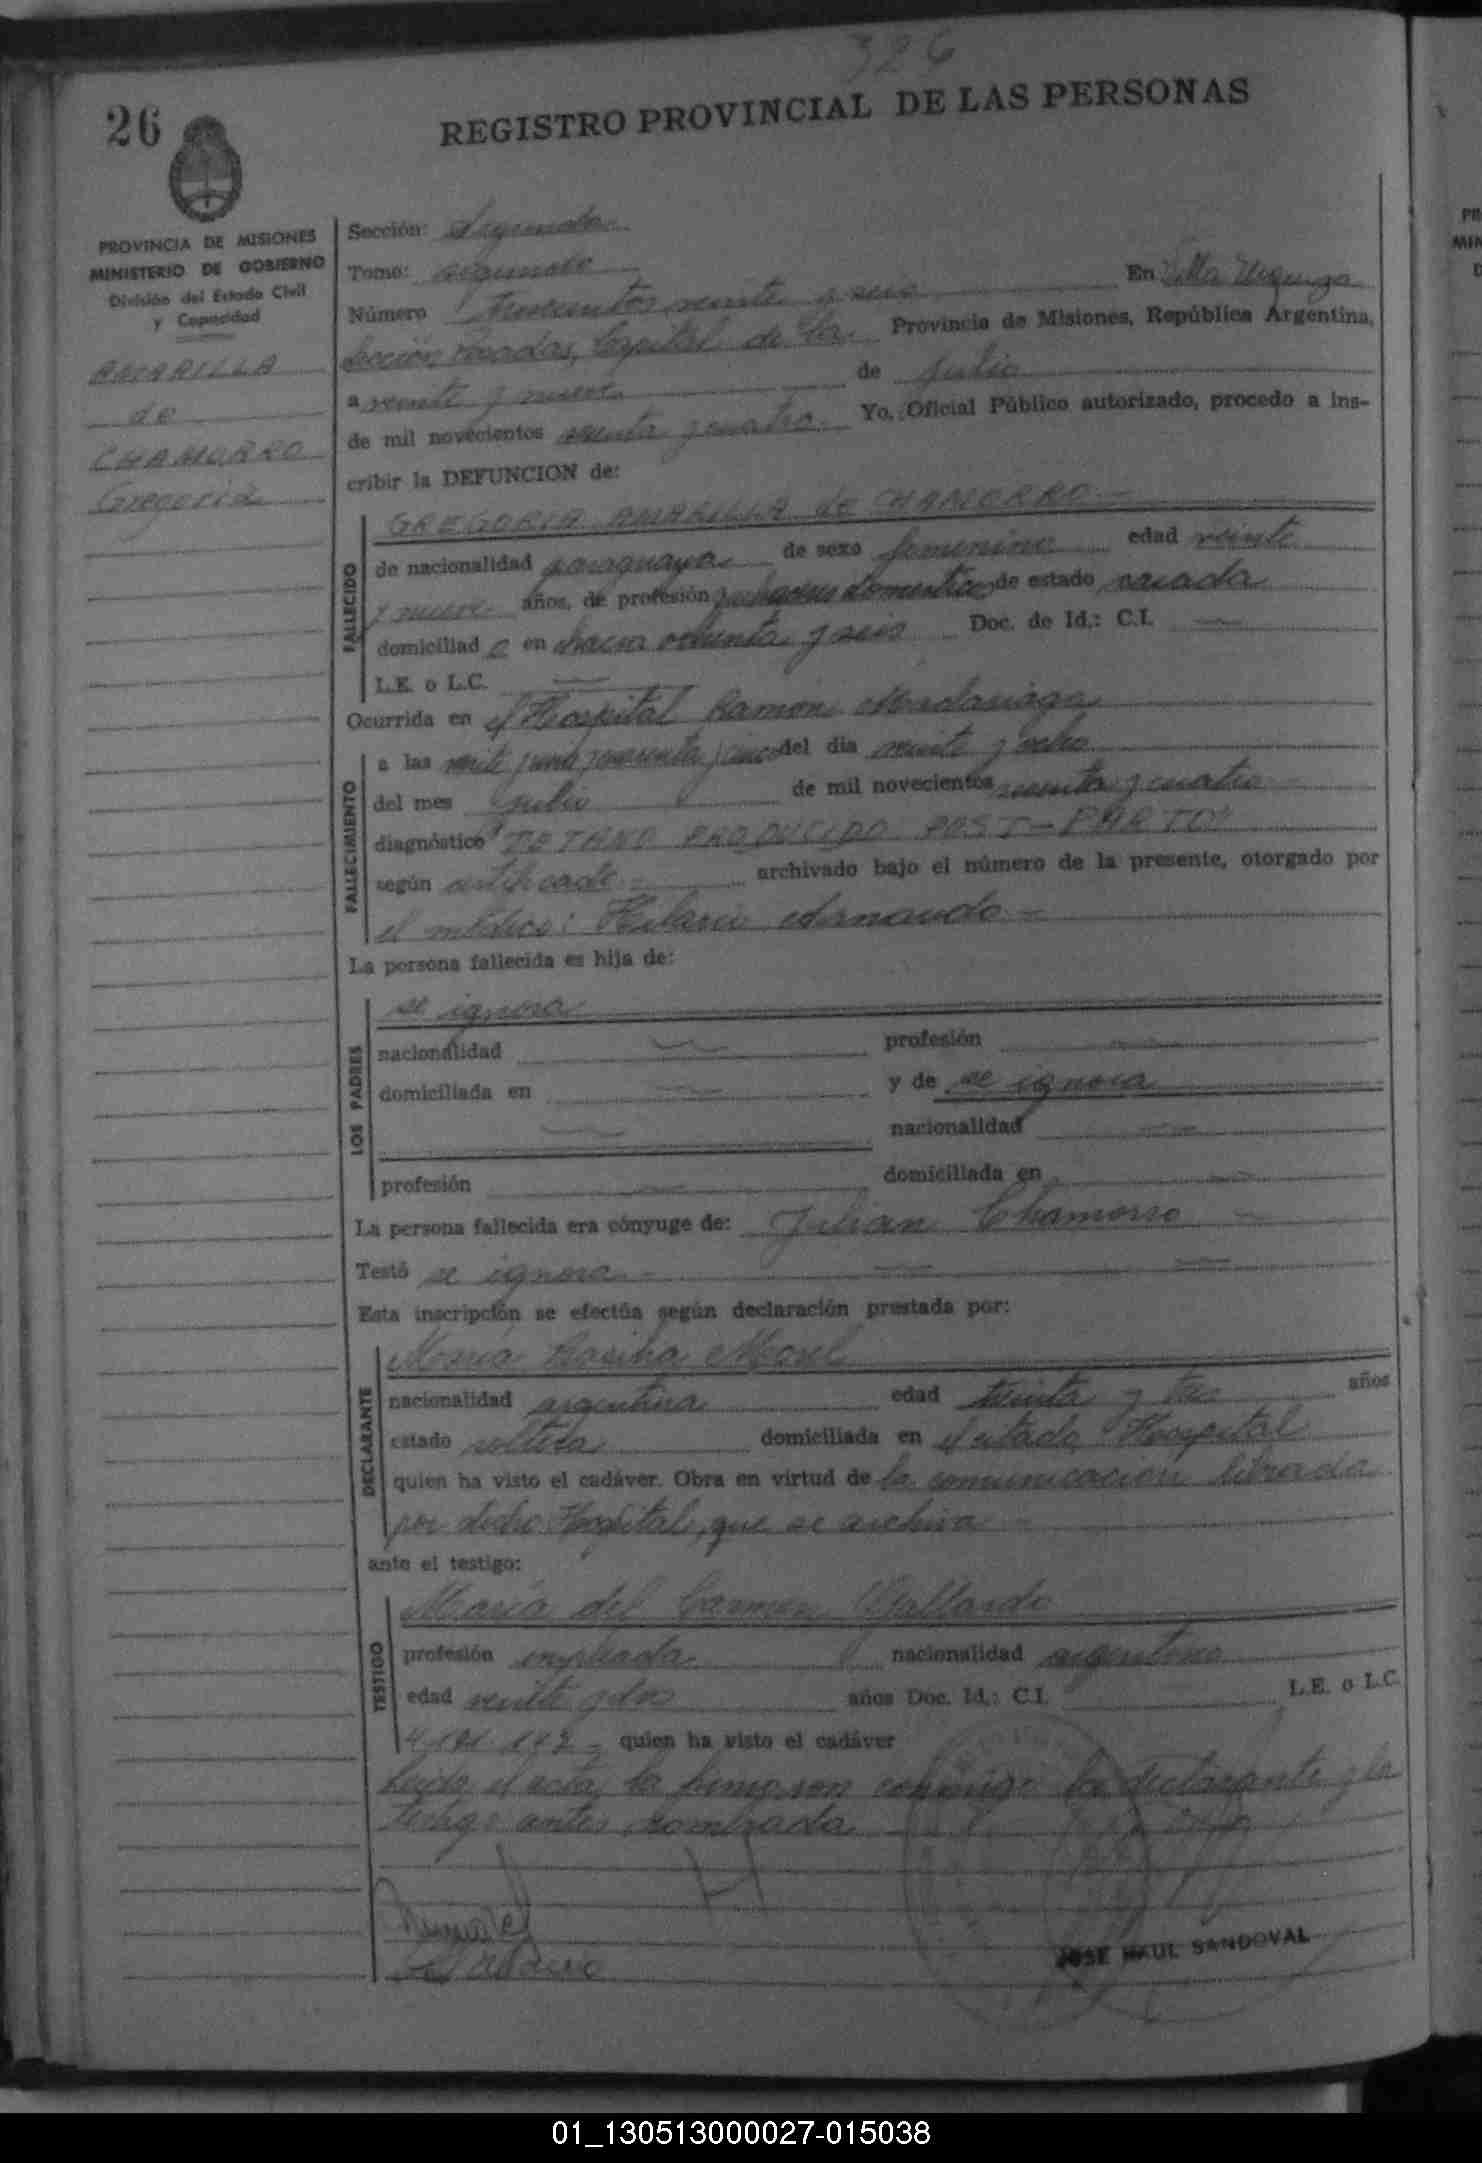 326
26
REGISTRO PROVINCIAL DE LAS PERSONAS
PROVINCIA DE MISIONES
MINISTERIO DE GOBIERNO
División del Estado Civil
y Capacidad
AMARILLA
de
CHAMORRO
Gregoria
Sección: Segunda
Tomo: segundo
Número Trescientos veinte y seis En Villa Urquiza
Sección Posadas, Capital de la Provincia de Misiones, República Argentina,
a veinte y nueve de julio
de mil novecientos sesenta y cuatro Yo, Oficial Público autorizado, procedo a ins-
cribir la DEFUNCION de:
FALLECIDO
GREGORIA AMARILLA de CHAMORRO
de nacionalidad paraguaya de sexo femenino edad veinte
y nueve años, de profesión quehaceres domesticos de estado casada
domiciliad a en chacra ochenta y seis Doc. de Id.: C.I.
L.E. o L.C.
Ocurrida en el Hospital Ramón Madariaga
FALLECIMIENTO
a las veinte y una y cuarenta y cinco del día veinte y ocho
del mes julio de mil novecientos sesenta y cuatro
diagnóstico "TETANO PRODUCIDO POST-PARTO"
según certificado archivado bajo el número de la presente, otorgado por
el médico: Hilario Arnaudo
La persona fallecida es hija de:
LOS PADRES
se ignora
nacionalidad profesión
domiciliada en y de se ignora
nacionalidad
profesión domiciliada en
La persona fallecida era cónyuge de: Julian Chamorro
Testó se ignora
Esta inscripción se efectúa según declaración prestada por:
DECLARANTE
María Rosina
nacionalidad argentina edad treinta y tres años
estado soltera domiciliada en el citado Hospital
quien ha visto el cadáver. Obra en virtud de la comunicación librada
por dicho Hospital, que se archiva
ante el testigo:
TESTIGO
María del Carmen Gallardo
profesión empleada nacionalidad argentina
edad veinte y dos años Doc. Id.: C.I. L.E. o L.C.
quien ha visto el cadáver
Leida el acta, la firmaron conmigo la declarante y la
testigo antes nombrada
JOSE RAUL SANDOVAL
01_130513000027-015038